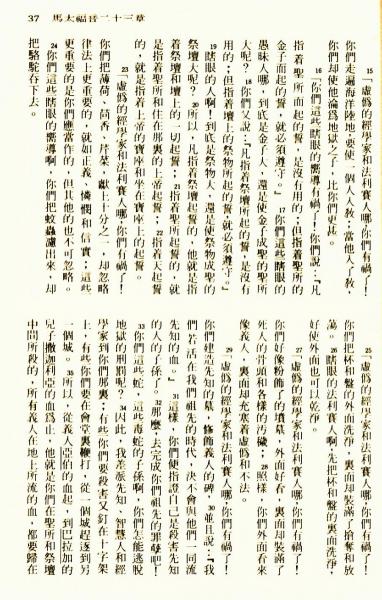 37 馬太福音二十三章
15「虛偽的經學家和法利賽人哪，你們有禍了！
你們走遍海洋陸地，要使一個人入教；當他入了教，
你們卻使他淪爲地獄之子，比你們更甚。
16「你們這些瞎眼的嚮導有禍了！你們說：『凡
指着聖所而起的誓，是沒有用的；但指着聖所的
金子而起的誓，就必須遵守。』17你們這些瞎眼的
愚昧人哪，到底是金子大，還是使金子成聖的聖所
大呢？18你們又說：『凡指着祭壇所起的誓，是沒有
用的；但指着壇上的祭物所起的誓，就必須遵守。』
19瞎眼的人啊！到底是祭物大，還是使祭物成聖的
祭壇大呢？20所以，凡指着祭壇起誓的，他就是指
着祭壇和壇上的一切起誓；21指着聖所起誓的，就
是指着聖所和住在那裏的上帝起誓；22指着天起誓
的，就是指着上帝的寶座和坐在寶座上的起誓。
23「虛偽的經學家和法利賽人哪，你們有禍了！
你們把薄荷、茴香、芹菜，獻上十分之一，却忽略
律法上更重要的，就如正義、憐憫和信實；這些
更重要的是你們應當作的，但其他的也不可忽略。
24你們這些瞎眼的嚮導啊，你們把蚊蟲濾出來，却
把駱駝吞下去。
25「虛偽的經學家和法利賽人哪，你們有禍了！
你們把杯和盤的外面洗淨，裏面却裝滿了搶奪和放
蕩。26瞎眼的法利賽人啊，先把杯和盤的裏面洗淨，
好使外面也可以乾淨。
27「虛偽的經學家和法利賽人哪，你們有禍了！
你們好像粉飾了的墳墓，外面好看，裏面却裝滿了
死人的骨頭和各樣的污穢；28照樣，你們外面看來
像義人，裏面却充塞着虛偽和不法。
29「虛偽的經學家和法利賽人哪，你們有禍了！
你們建造先知的墓，修飾義人的碑，30並且說：『我
們若活在我們祖先的時代，決不會與他們一同流
先知的血。』31這樣，你們便指證自己是殺害先知
的人的子孫了。32那麼，去完成你們祖先的罪孽吧！
33你們這些蛇，這些毒蛇的子孫啊，你們怎能逃脫
地獄的刑罰呢？34因此，我差派先知、智慧人和經
學家到你們那裏；有些你們要殺害又釘在十字架
上，有些你們要在會堂裏鞭打，從一個城趕逐到另
一個城。35所以，從義人亞伯的血起，到巴拉加的
兒子撒迦利亞的血爲止，他就是你們在聖所和祭壇
中間所殺的，所有義人在地上所流的血，都要歸在